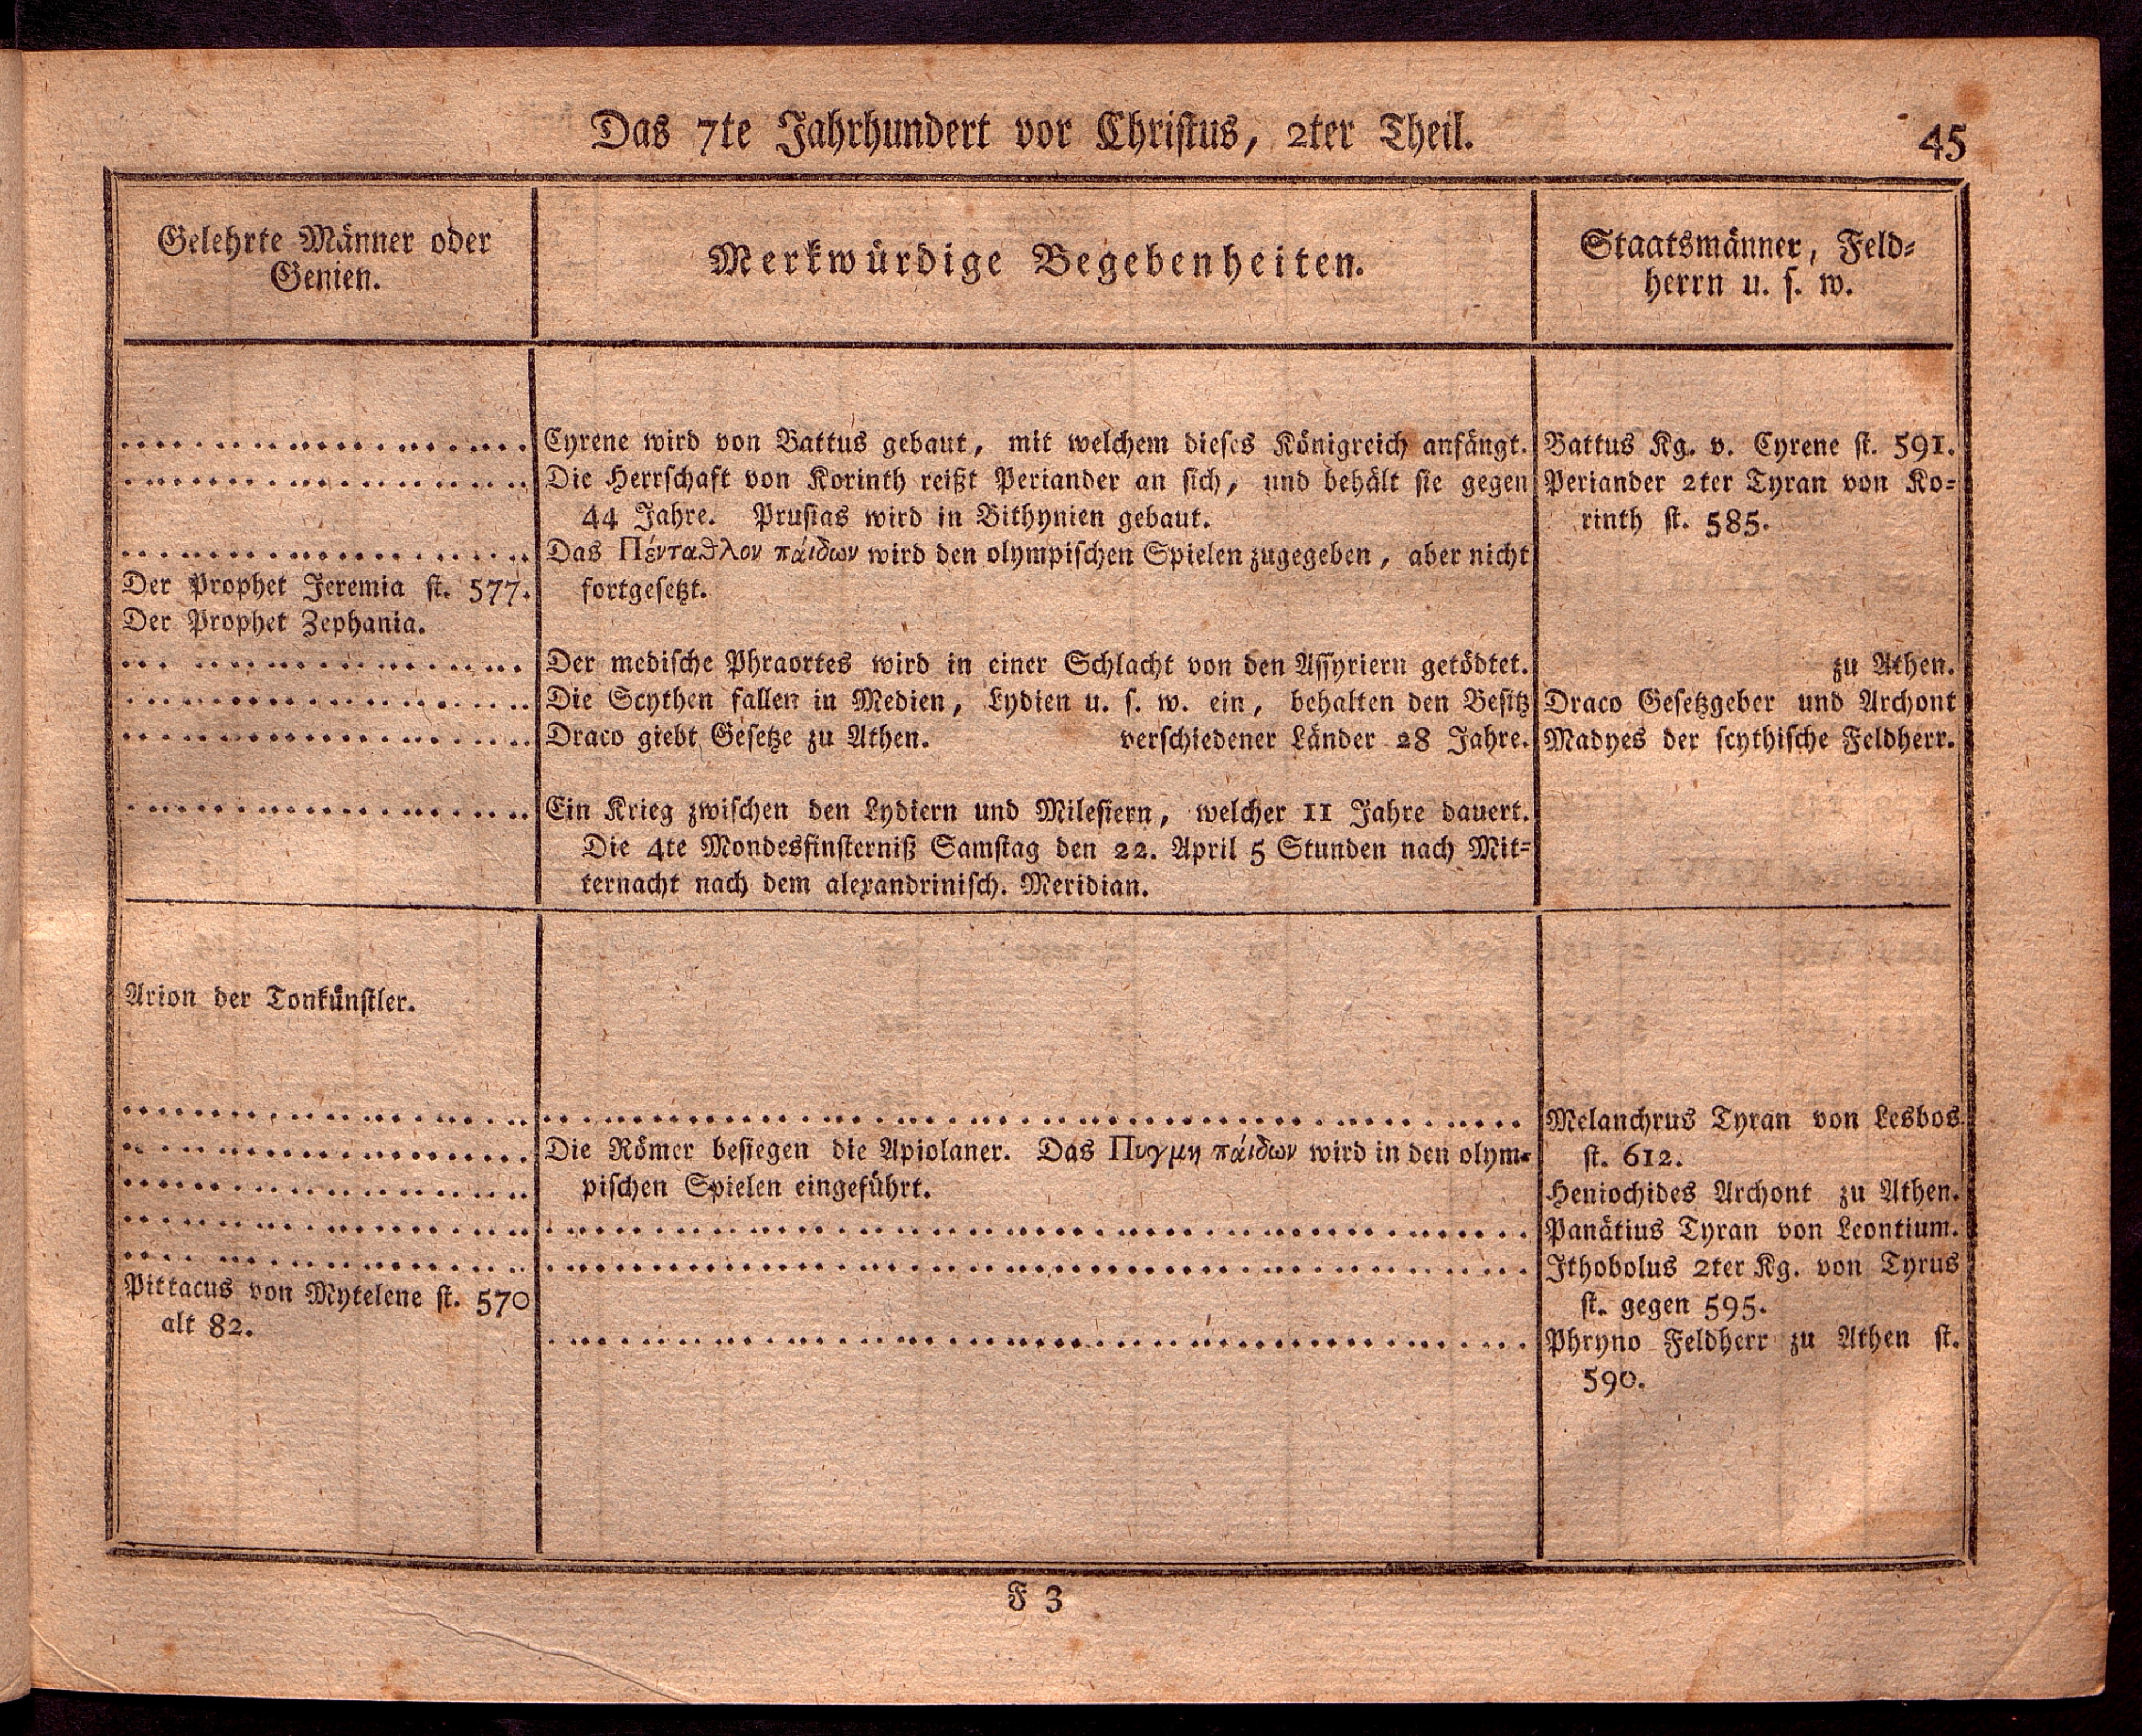 Das 7te Jahrhundert vor Christus, 2ter Theil.
45
Gelehrte Männer oder
Genien.
Merkwürdige Begebenheiten.
Staatsmänner, Feld-
herrn u. s. w.
Cyrene wird von Battus gebaut, mit welchem dieses Königreich anfängt.
Battus Kg. v. Cyrene st. 591.
Die Herrschaft von Korinth reißt Periander an sich, und behält sie gegen
Periander 2ter Tyran von Ko-
44 Jahre. Prusias wird in Bithynien gebaut.
rinth st. 585.
Das Πένταθλον πάιδων wird den olympischen Spielen zugegeben, aber nicht
Der Prophet Jeremia st. 577.
fortgesetzt.
Der Prophet Zephania.
Der medische Phraortes wird in einer Schlacht von den Assyriern getödtet.
zu Athen.
Die Scythen fallen in Medien, Lydien u. s. w. ein, behalten den Besitz
Draco Gesetzgeber und Archont
Draco giebt Gesetze zu Athen. verschiedener Länder 28 Jahre.
Madyes der scythische Feldherr.
Ein Krieg zwischen den Lydiern und Milesiern, welcher 11 Jahre dauert.
Die 4te Mondesfinsterniß Samstag den 22. April 5 Stunden nach Mit-
ternacht nach dem alexandrinisch. Meridian.
Arion der Tonkünstler.
Melanchrus Tyran von Lesbos
Die Römer besiegen die Apiolaner. Das Πυγμη πάιδων wird in den olym-
st. 612.
pischen Spielen eingeführt.
Heniochides Archont zu Athen.
Panätius Tyran von Leontium.
Ithobolus 2ter Kg. von Tyrus
Pittacus von Mytelene st. 570
st. gegen 595.
alt 82.
Phryno Feldherr zu Athen st.
590.
F 3